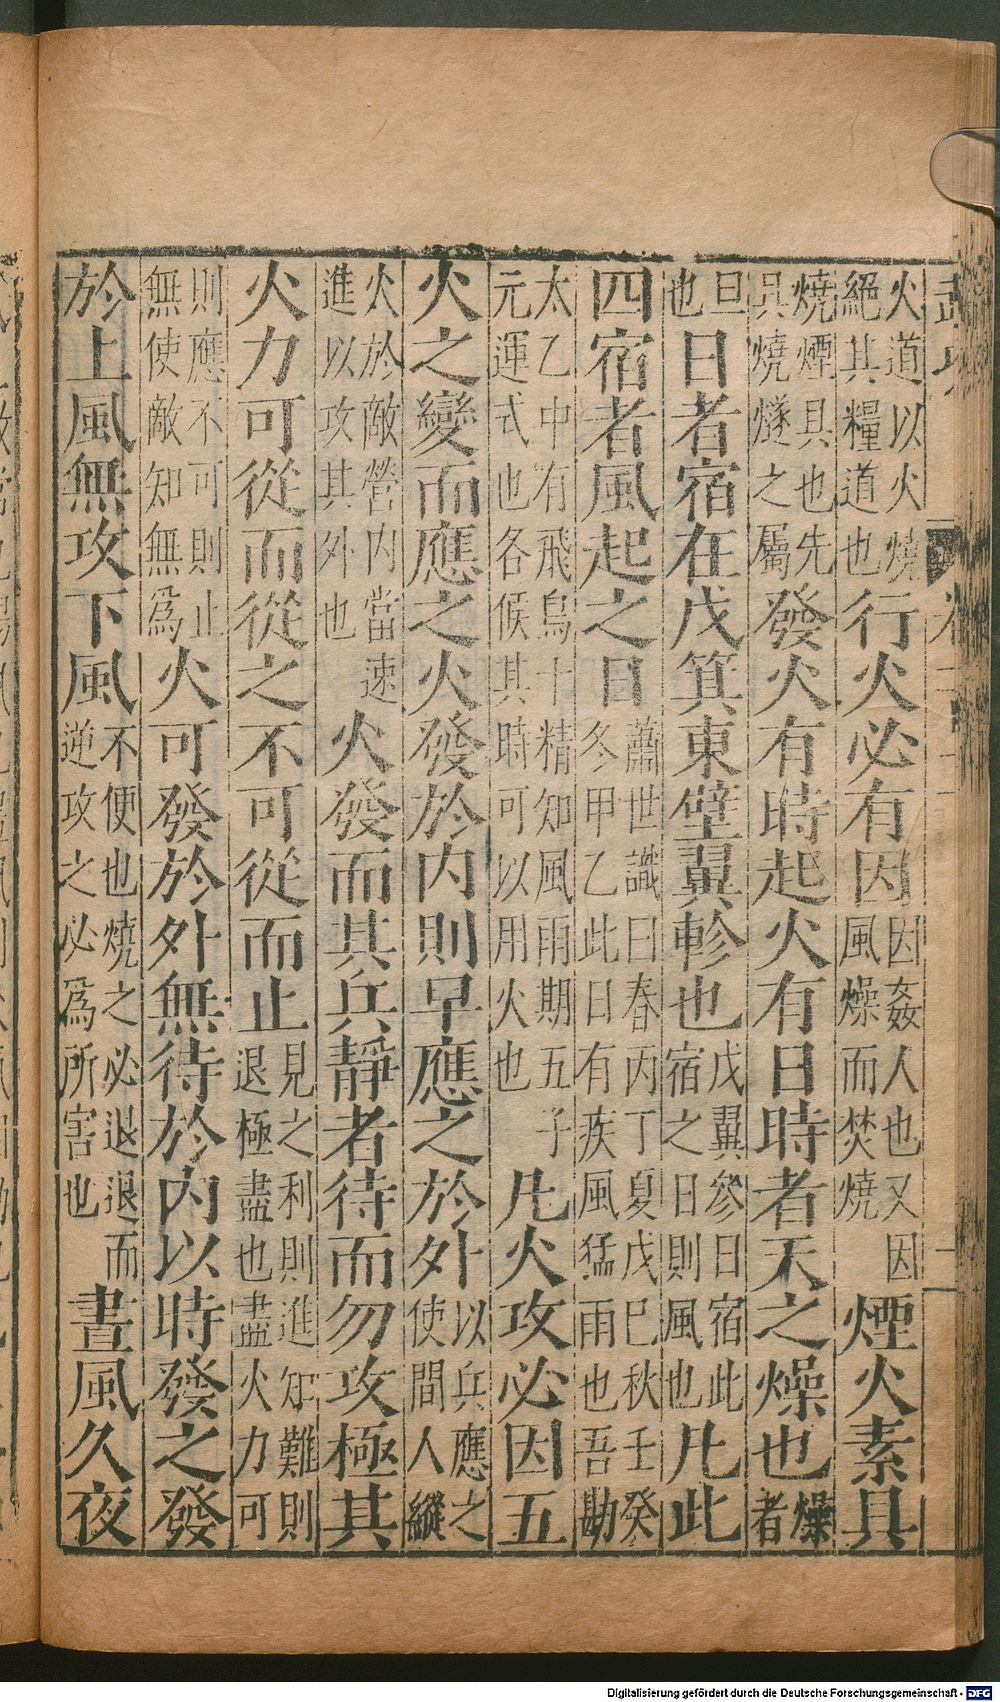 火道以火燒絕其糧道也行火必有因因姦人也又因風燥而焚燒煙火素具
燒煙具也先具燒燧之屬發火有時起火有日時者天之燥也燥者
旦也日者宿在戊箕東壁翼軫也戊翼參日宿此宿之日則風也凡此
四宿者風起之日蕭世諴曰春丙丁夏戊巳秋壬癸冬甲乙此日有疾風猛雨也吾勘
太乙中有飛鳥十精知風雨期五子元運式也各候其時可以用火也凡火攻必因五
火之變而應之火發於內則早應之於外以兵應之使間人縱
火於敵營內當速進以攻其外也火發而其兵靜者待而勿攻極其
火力可從而從之不可從而止見之利則進知難則退極盡也盡火力可
則應不可則止無使敵知無為火可發於外無待於內以時發之發
於上風無攻下風不便也燒之必退退而逆攻之必為所害也晝風久夜
Digitalisierung gefördert durch die Deutsche Forschungsgemeinschaft - DFG